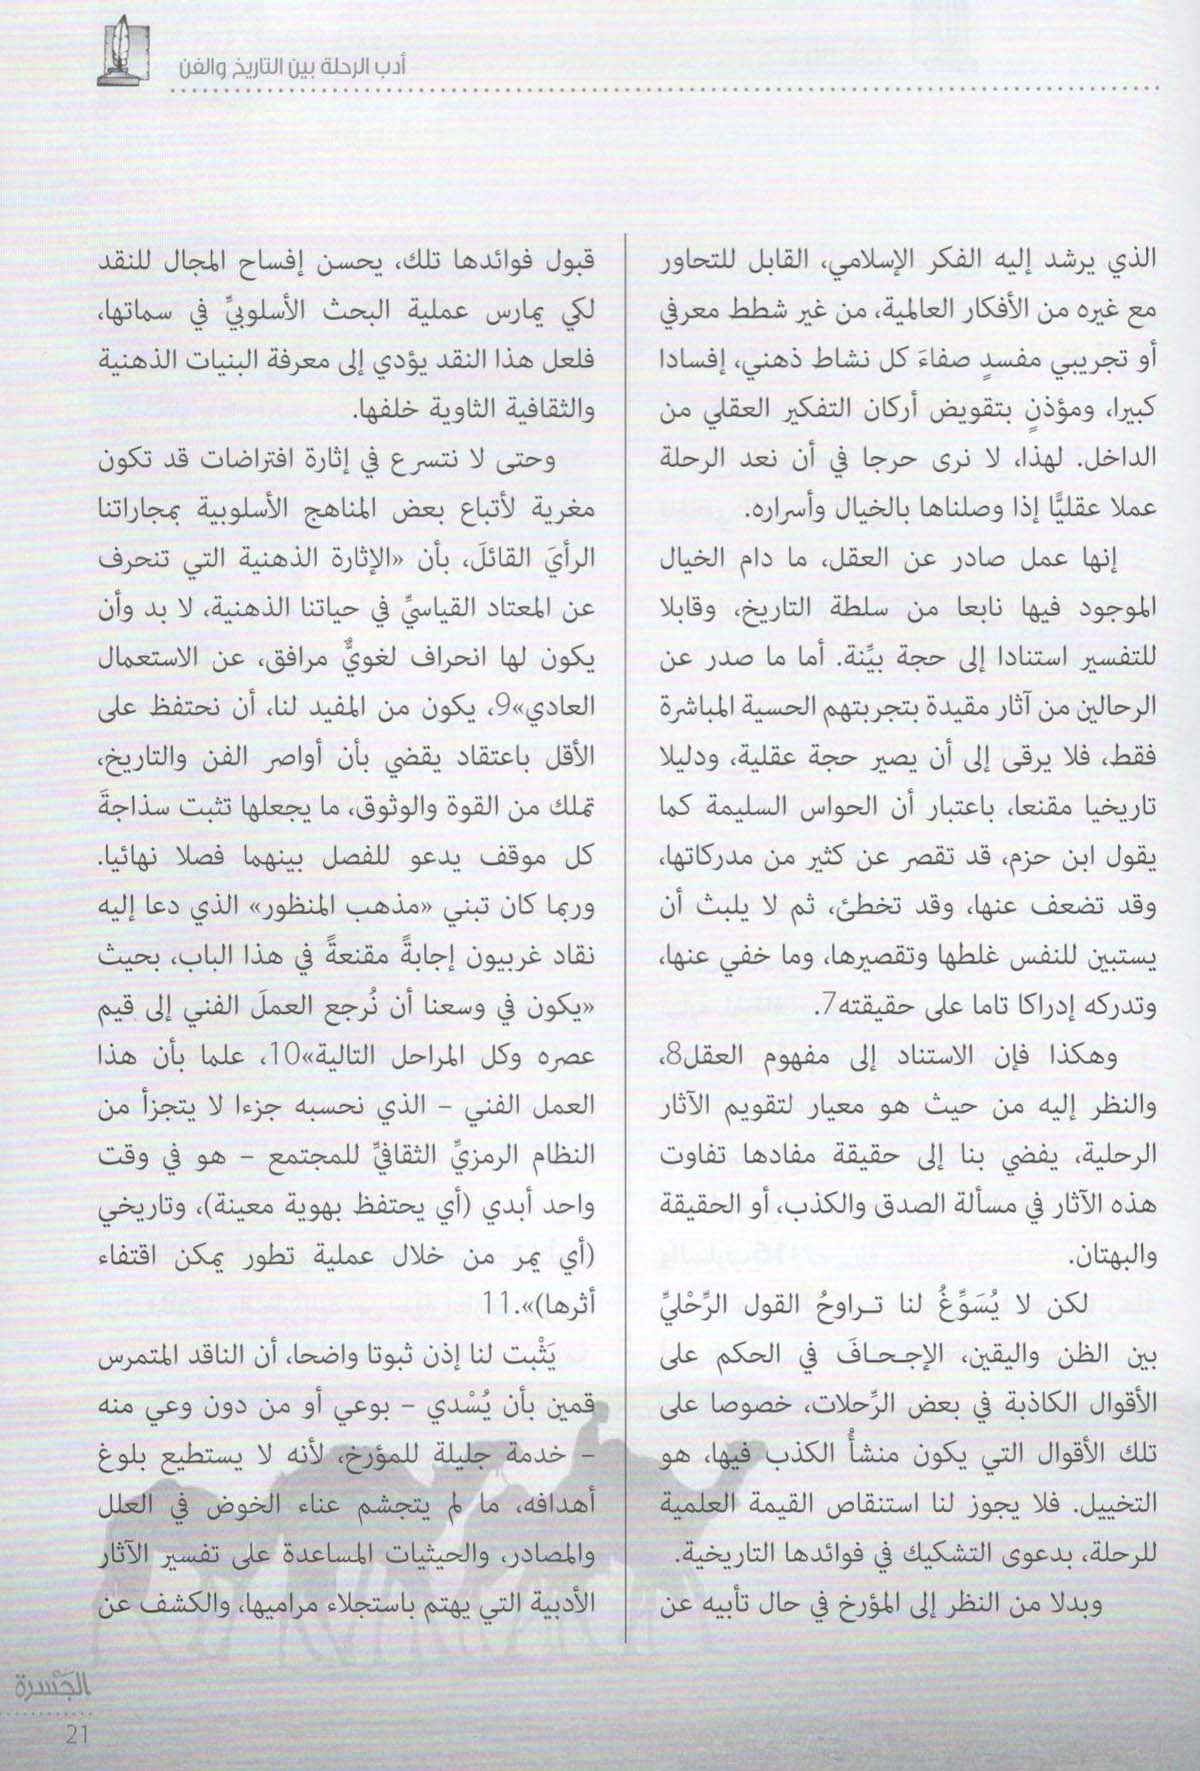 أدب الرحلة بين التاريخ والفن
الذي يرشد إليه الفكر الإسلامي، القابل للتحاور
مع غيره من الأفكار العالمية، من غير شطط معرفي
أو تجريبي مفسدٍ صفاءَ كل نشاط ذهني، إفسادا
كبيرا، ومؤذنٍ بتقويض أركان التفكير العقلي من
الداخل. لهذا، لا نرى حرجا في أن نعد الرحلة
عملا عقليًّا إذا وصلناها بالخيال وأسراره.
إنها عمل صادر عن العقل، ما دام الخيال
الموجود فيها نابعا من سلطة التاريخ، وقابلا
للتفسير استنادا إلى حجة بيِّنة. أما ما صدر عن
الرحالين من آثار مقيدة بتجربتهم الحسية المباشرة
فقط، فلا يرقى إلى أن يصير حجة عقلية، ودليلا
تاريخيا مقنعا، باعتبار أن الحواس السليمة كما
يقول ابن حزم، قد تقصر عن كثير من مدركاتها،
وقد تضعف عنها، وقد تخطئ، ثم لا يلبث أن
يستبين للنفس غلطها وتقصيرها، وما خفي عنها،
وتدركه إدراكا تاما على حقيقته7.
وهكذا فإن الاستناد إلى مفهوم العقل8،
والنظر إليه من حيث هو معيار لتقويم الآثار
الرحلية، يفضي بنا إلى حقيقة مفادها تفاوت
هذه الآثار في مسألة الصدق والكذب، أو الحقيقة
والبهتان.
لكن لا يُسَوِّغُ لنا تراوحُ القول الرِّحْليِّ
بين الظن واليقين، الإجحافَ في الحكم على
الأقوال الكاذبة في بعض الرِّحلات، خصوصا على
تلك الأقوال التي يكون منشأُ الكذب فيها، هو
التخييل. فلا يجوز لنا استنقاص القيمة العلمية
للرحلة، بدعوى التشكيك في فوائدها التاريخية.
وبدلا من النظر إلى المؤرخ في حال تأبيه عن
قبول فوائدها تلك، يحسن إفساح المجال للنقد
لكي يمارس عملية البحث الأسلوبيِّ في سماتها،
فلعل هذا النقد يؤدي إلى معرفة البنيات الذهنية
والثقافية الثاوية خلفها.
وحتى لا نتسرع في إثارة افتراضات قد تكون
مغرية لأتباع بعض المناهج الأسلوبية بمجاراتنا
الرأيَ القائلَ، بأن «الإثارة الذهنية التي تنحرف
عن المعتاد القياسيِّ في حياتنا الذهنية، لا بد وأن
يكون لها انحراف لغويٌّ مرافق، عن الاستعمال
العادي»9، يكون من المفيد لنا، أن نحتفظ على
الأقل باعتقاد يقضي بأن أواصر الفن والتاريخ،
تملك من القوة والوثوق، ما يجعلها تثبت سذاجةَ
كل موقف يدعو للفصل بينهما فصلا نهائيا.
وربما كان تبني «مذهب المنظور» الذي دعا إليه
نقاد غربيون إجابةً مقنعةً في هذا الباب، بحيث
«يكون في وسعنا أن نُرجع العملَ الفني إلى قيم
عصره وكل المراحل التالية»10، علما بأن هذا
العمل الفني – الذي نحسبه جزءا لا يتجزأ من
النظام الرمزيِّ الثقافيِّ للمجتمع – هو في وقت
واحد أبدي (أي يحتفظ بهوية معينة)، وتاريخي
(أي يمر من خلال عملية تطور يمكن اقتفاء
أثرها)».11
يَثْبت لنا إذن ثبوتا واضحا، أن الناقد المتمرس
قمين بأن يُسْدي – بوعي أو من دون وعي منه
– خدمة جليلة للمؤرخ، لأنه لا يستطيع بلوغ
أهدافه، ما لم يتجشم عناء الخوض في العلل
والمصادر، والحيثيات المساعدة على تفسير الآثار
الأدبية التي يهتم باستجلاء مراميها، والكشف عن
الجَسْرة
21